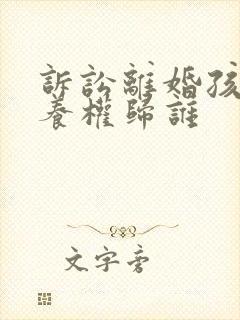 訴訟離婚孩
養權歸誰
文字旁